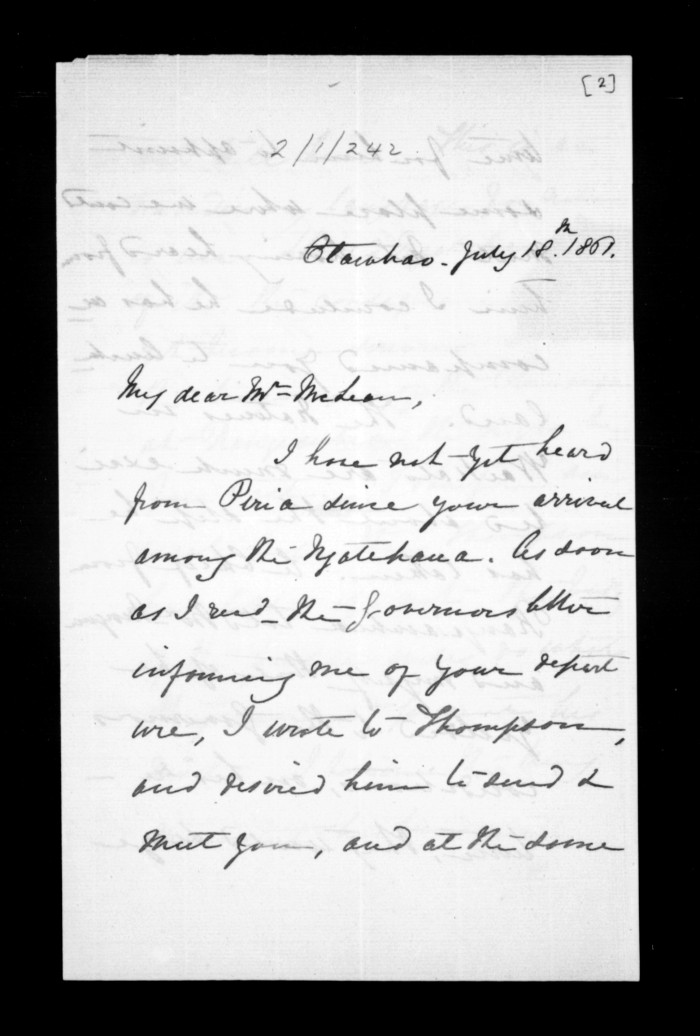 [2]
2/1/242
Otawhao. July 18.th 1861.
My dear Mr McLean,
I have not yet heard
from Piria since your arrival
among the Ngatehaua. As soon
as I recd the Governors letter
informing me of your depart
ure, I wrote to Thompson,
and desired him to send &
meet you, and at the same